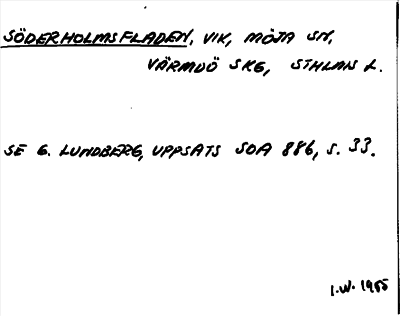 SÖDERHOLMSFLADEN, VIK, MÖJA SN,
VÄRMDÖ SKG, STHLMS L.
SE G. LUNDBERG, UPPSATS SOA 886, S. 33.
I.W. 1985